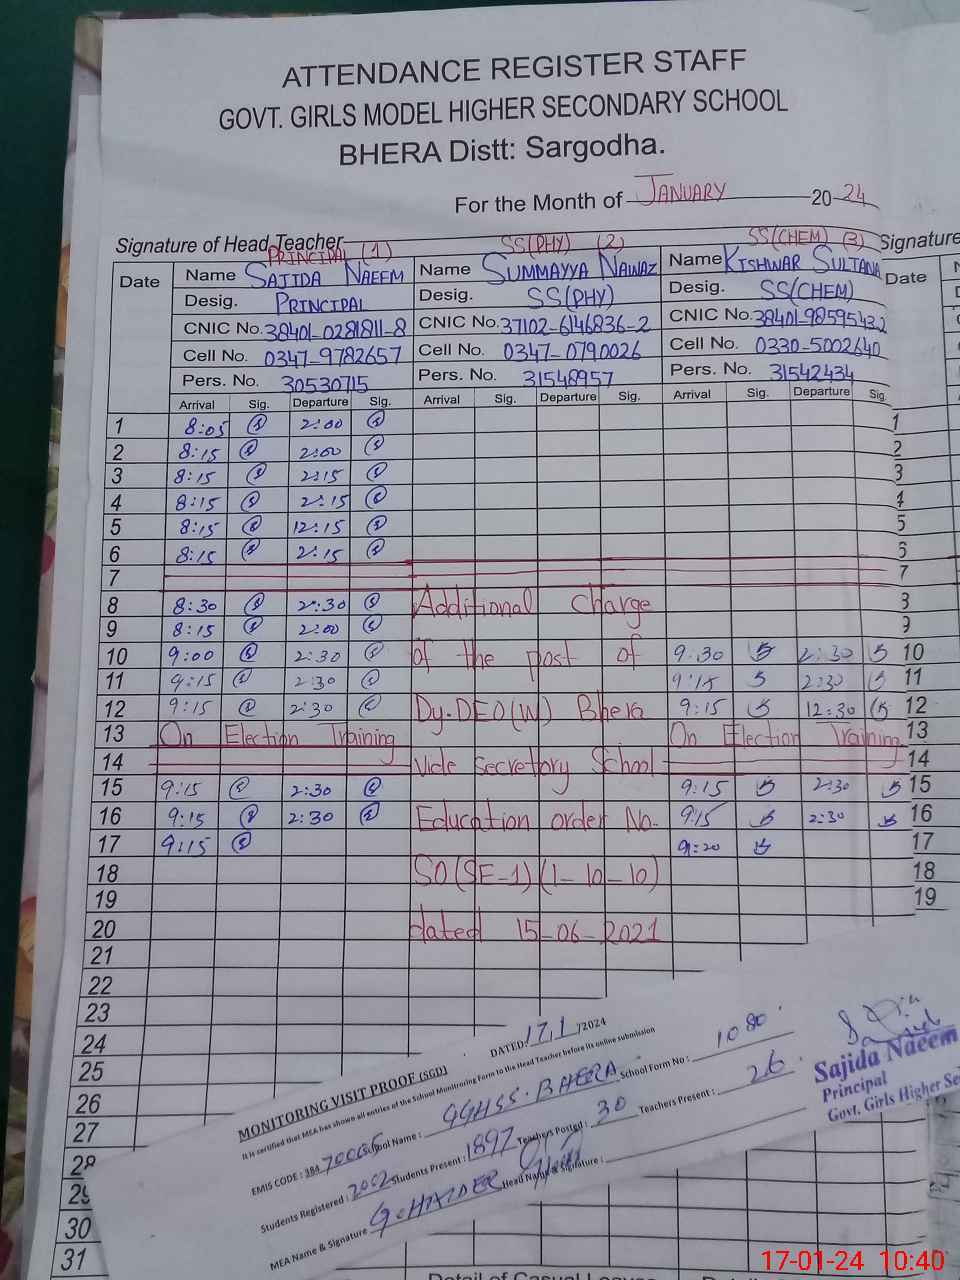 ATTENDANCE REGISTER STAFF
GOVT. GIRLS MODEL HIGHER SECONDARY SCHOOL
BHERA Distt: Sargodha.
For the Month of JANUARY 2024
Signature of Head Teacher
PRINCIPAL (1) SS(PHY) (2) SS(CHEM) (3) Signature
Date Name SAJIDA NAEEM Name SUMMAYYA NAWAZ Name KISHWAR SULTANA Date
Desig. PRINCIPAL Desig. SS(PHY) Desig. SS(CHEM)
CNIC No. 38401-0281811-8 CNIC No. 37102-6146836-2 CNIC No. 38401-9859543-2
Cell No. 0347-9782657 Cell No. 0347-0790026 Cell No. 0330-5002640
Pers. No. 30530715 Pers. No. 31548957 Pers. No. 31542434
Arrival Sig. Departure Sig. Arrival Sig. Departure Sig. Arrival Sig. Departure Sig.
1 8:05 2:00 1
2 8:15 2:00 2
3 8:15 2:15 3
4 8:15 2:15 4
5 8:15 12:15 5
6 8:15 2:15 6
7 7
8 8:30 2:30 Additional Charge
9 8:15 2:00 9
10 9:00 2:30 of the post of 9:30 2:30 10
11 9:15 2:30 9:15 2:30 11
12 9:15 2:30 Dy.DEO(W) Bhera 9:15 12:30 12
13 On Election Training On Election Training 13
14 Vide Secretory School 14
15 9:15 2:30 9:15 2:30 15
16 9:15 2:30 Education order No. 9:15 2:30 16
17 9:15 9:20 17
18 SO(SE-1)(1-10-10) 18
19 19
20 dated 15-06-2021
21
22
23
24
25
26
27
28
29
30
31
MONITORING VISIT PROOF (SGD) DATED: 17/1/2024
It is certified that MEA has shown all entries of the School Monitroring Form to the Head Teacher before its online submission
EMIS CODE : 384 School Name : GGHSS. BHERA School Form No : 1080
Students Registered : 2002 Students Present : 1897 Teachers Posted : 30 Teachers Present : 26
MEA Name & Signature G. HAIDER Head Name & Signature :
Sajida Naeem
Principal
Govt. Girls Higher Se
17-01-24 10:40